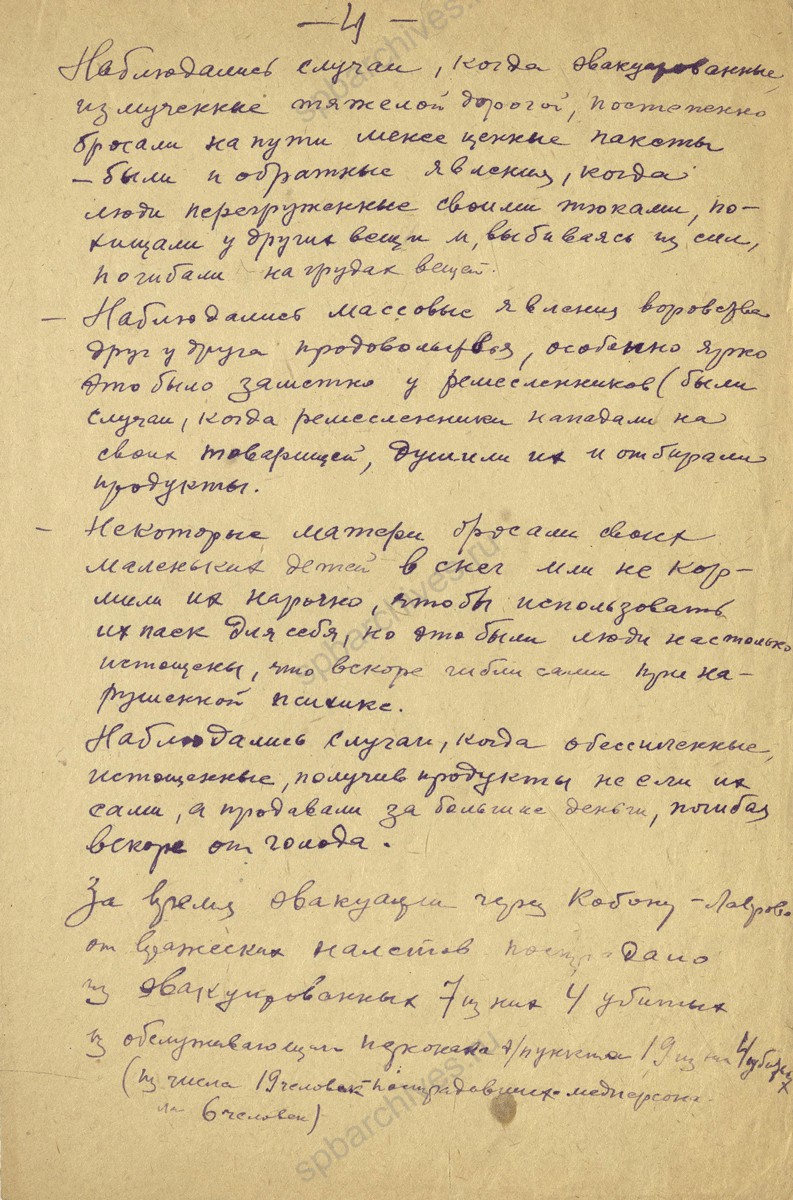 — 4 —
Наблюдались случаи, когда эвакуированные,
измученные тяжелой дорогой, постепенно
бросали на пути менее ценные пакеты
– были и обратные явления, когда
люди перегруженные своими тюками, по-
хищали у других вещи и, выбиваясь из сил,
погибали на грудах вещей.
— Наблюдались массовые явления воровства
друг у друга продовольствия, особенно ярко
это было заметно у ремесленников (были
случаи, когда ремесленники нападали на
своих товарищей, душили их и отбирали
продукты.
— Некоторые матери бросали своих
маленьких детей в снег или не кор-
мили их нарочно, чтобы использовать
их паек для себя, но это были люди настолько
истощены, что вскоре гибли сами при на-
рушенной психике.
Наблюдались случаи, когда обессиленные,
истощенные, получив продукты не ели их
сами, а продавали за большие деньги, погибая
вскоре от голода.
За время эвакуации через Кобону – Лаврово
от вражеских налетов пострадало
из эвакуированных 7 из них 4 убитых
из обслуживающего персонала э/пункта 19 из них 4 убитых
(из числа 19 человек пострадавших медперсона-
ла 6 человек)
spbarchives.ru
spbarchives.ru
spbarchives.ru
spbarchives.ru